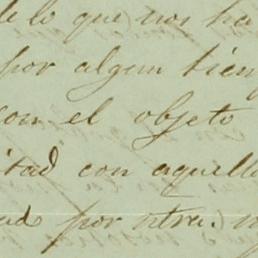 de lo que nos ha
por algun tiem
con el objeto
itad con aquella
ad por otra.